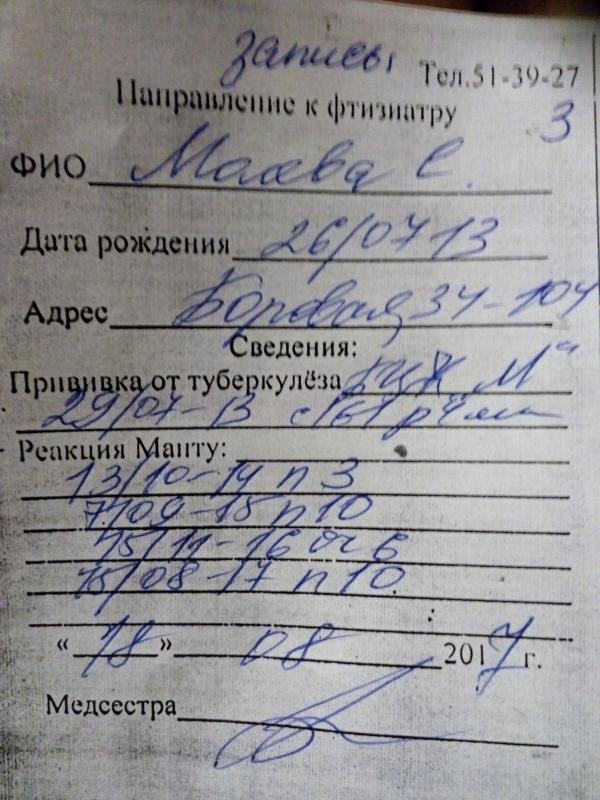 запись
Тел.51-39-27
Направление к фтизиатру
3
ФИО С.
Дата рождения 26/07 13
Адрес Боровая 34-104
Сведения:
Прививка от туберкулёза БЦЖ "М"
29/07-13 с 161 р4мм
Реакция Манту:
13/10-14 п 3
7/09-15 п 10
15/11-16 6
15/08-17 п 10
"18" 08 2017 г.
Медсестра